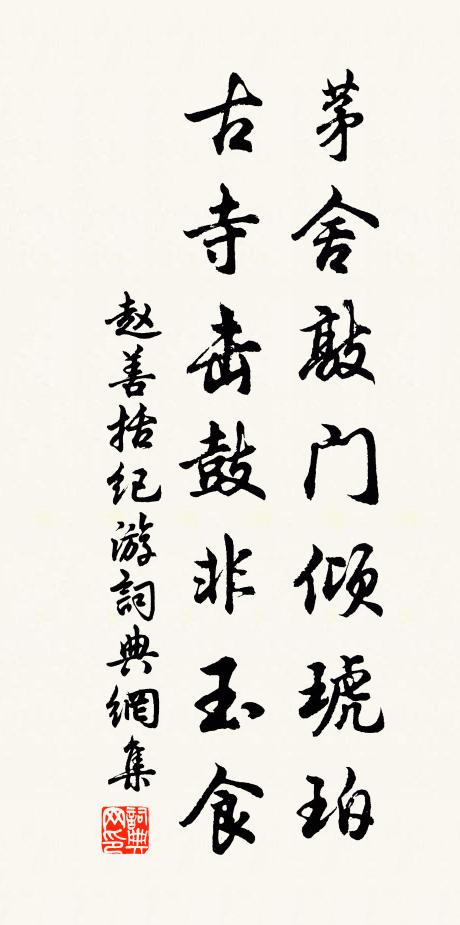 茅舍敲門傾琥珀
古寺击鼓非玉食
赵善括纪游詞典網集
詞典
网印